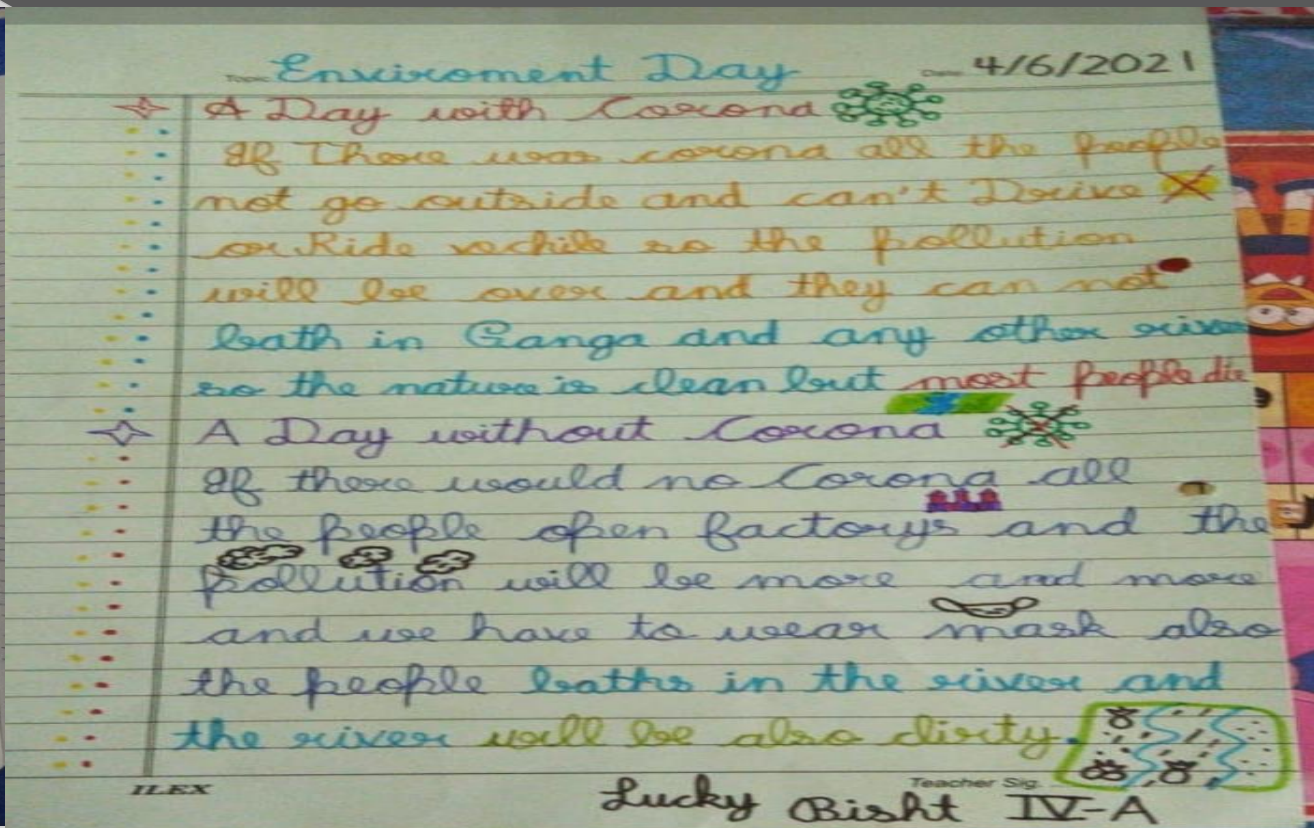 Topic Enviroment Day Date 4/6/2021
A Day with Corona
If There was corona all the people
not go outside and can't Drive
or Ride vechile so the pollution
will be over and they can not
bath in Ganga and any other river
so the nature is clean but most people die
A Day without Corona
If there would no Corona all
the people open factorys and the
pollution will be more and more
and we have to wear mask also
the people baths in the river and
the river will be also dirty.
ILEX Teacher Sig.
Lucky Bisht IV-A